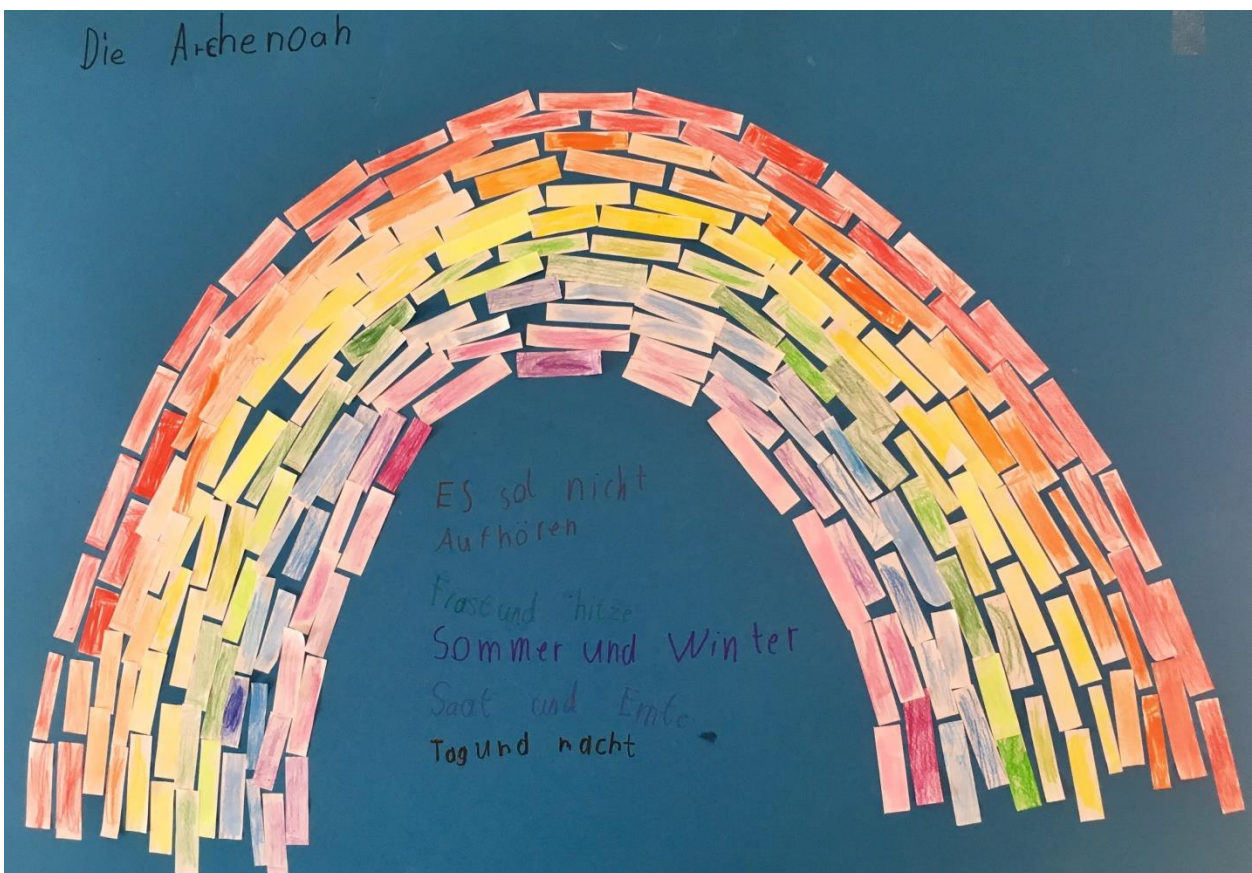 Die Archenoah
Es sol nicht
Aufhören
Frost und hitze
Sommer und Winter
Saat und Ernte
Tag und nacht